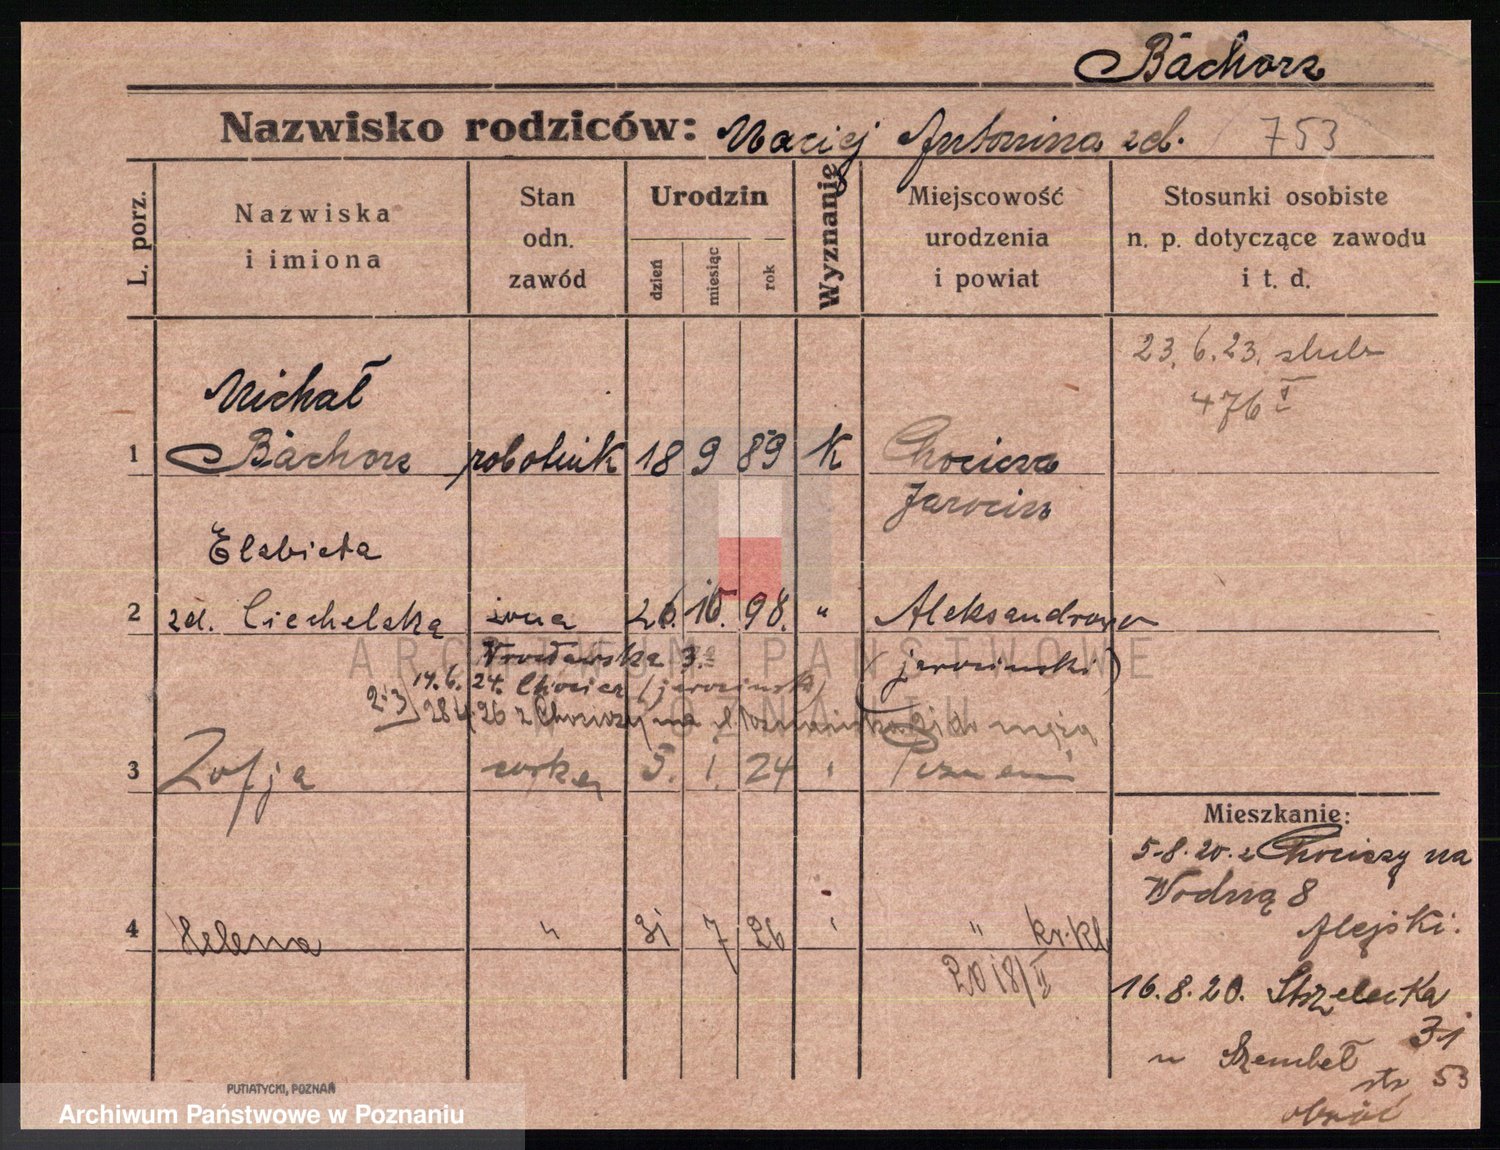 Bachorz
Nazwisko rodziców: Maciej Antonina zd. 753
L. porz.
Nazwiska
i imiona
Stan
odn.
zawód
Urodzin
dzień
miesiąc
rok
Wyznanie
Miejscowość
urodzenia
i powiat
Stosunki osobiste
n. p. dotyczące zawodu
i t. d.
23. 6. 23. ślub
476 I
Michał
1 Bachorz robotnik 18 9 89 k Chocicza
Jarocin
Elżbieta
2 zd. Ciechelska żona 26. 10. 98. " Aleksandrowo
(jarociński)
Wrocławska 3.
14. 6. 24. Chocicz (jarociński)
28 4. 26 z Chociczy na do męża
3 Zofja córka 5. 1. 24 " Poznań
Mieszkanie:
5-8. 20. z Chociczy na
Wodną 8
Alejski.
4 Helena " 31 7 26 " " kr. kl.
2018/II
16. 8. 20. Strzelecka
31
u Szembeł
str 53
obróć
PUTIATYCKI, POZNAŃ
Archiwum Państwowe w Poznaniu
ARCHIWUM PAŃSTWOWE
W POZNANIU